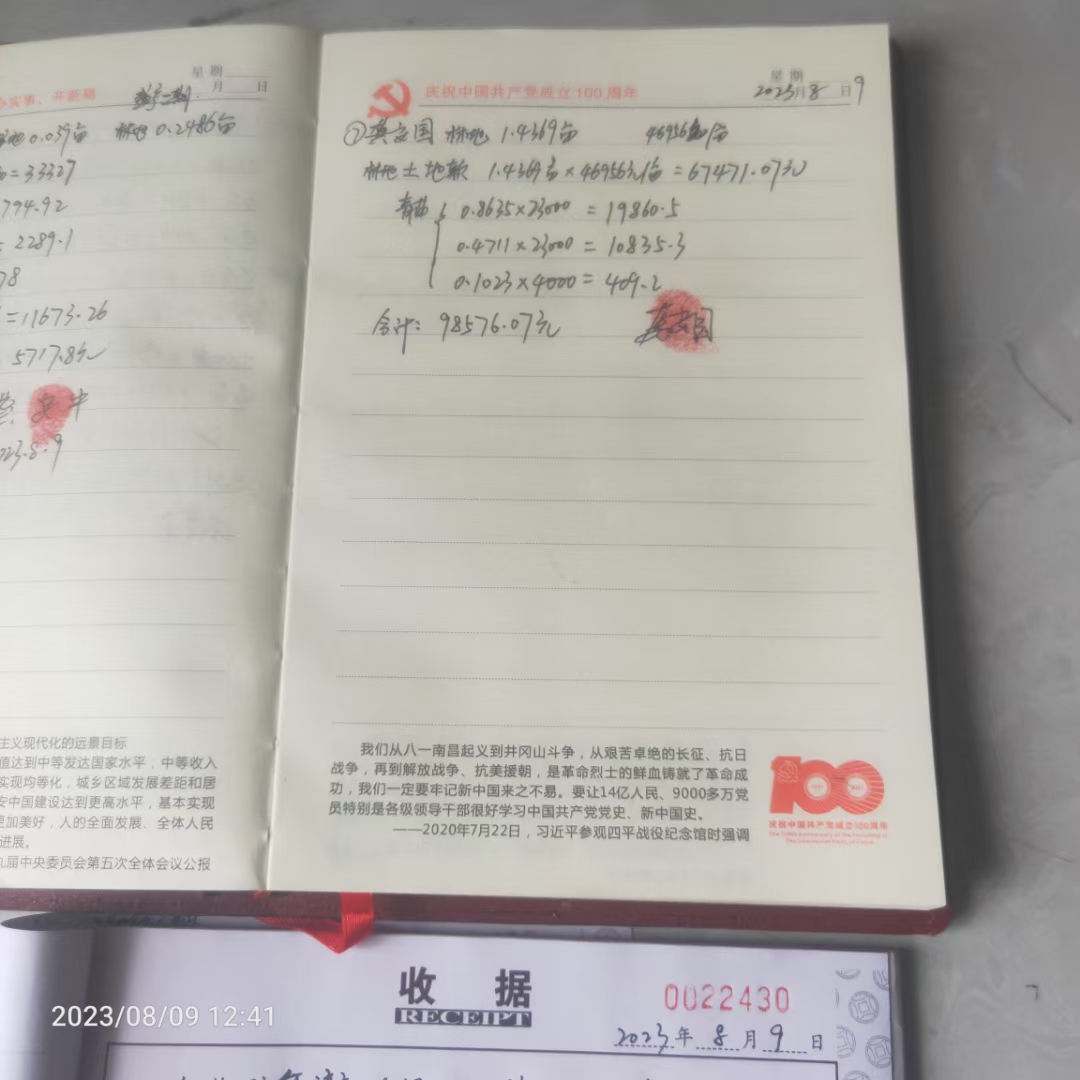 办实事、开新局
星期
月 日
0.039亩 林地 0.2486亩
=33327
794.92
2289.1
78
=11673.26
5717.8元
2023.8.9
主义现代化的远景目标
值达到中等发达国家水平，中等收入
实现均等化，城乡区域发展差距和居
安中国建设达到更高水平，基本实现
更加美好，人的全面发展、全体人民
进展。
九届中央委员会第五次全体会议公报
庆祝中国共产党成立100周年
星期
2023月8日9
⑦ 国 林地 1.4369亩 46956元/亩
林地土地款 1.4369亩×46956元/亩=67471.07元
青苗 0.8635×23000=19860.5
0.4711×23000=10835.3
0.1023×4000=409.2
合计：98576.07元
我们从八一南昌起义到井冈山斗争，从艰苦卓绝的长征、抗日
战争，再到解放战争、抗美援朝，是革命烈士的鲜血铸就了革命成
功，我们一定要牢记新中国来之不易。要让14亿人民、9000多万党
员特别是各级领导干部很好学习中国共产党党史、新中国史。
——2020年7月22日，习近平参观四平战役纪念馆时强调
100
庆祝中国共产党成立100周年
The 100th Anniversary of the Founding of
The Communist Party of China
收据
RECEIPT
0022430
2023年8月9日
2023/08/09 12:41